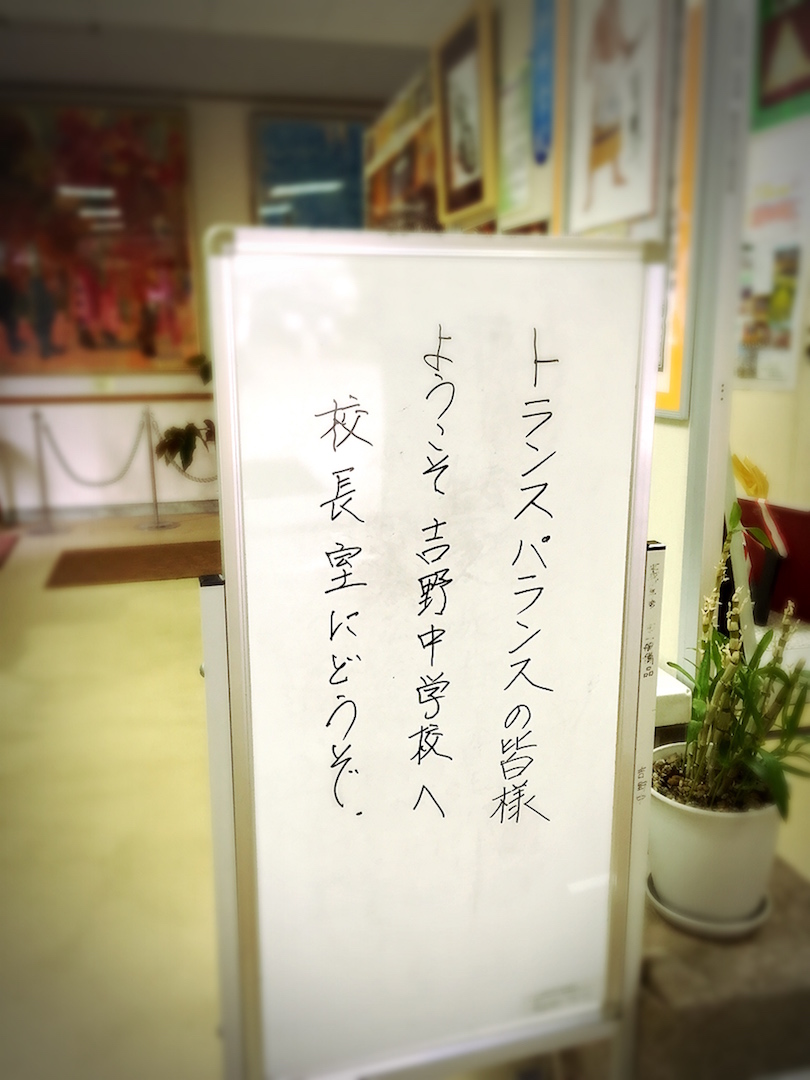 トランスパランスの皆様
ようこそ吉野中学校へ
校長室にどうぞ.